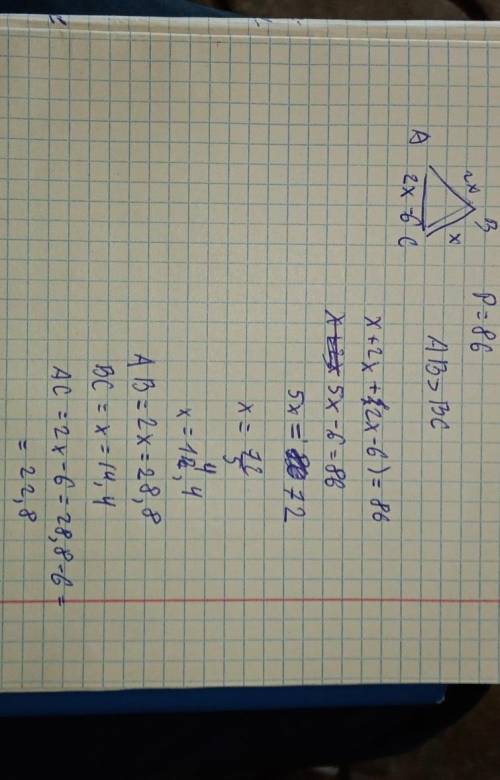 B
2x
x
A
2x-6
C
P=86
AB>BC
x+2x+(2x-6)=86
5x-6=86
5x=72
x=72/5
x=14,4
AB=2x=28,8
BC=x=14,4
AC=2x-6=28,8-6=
=22,8